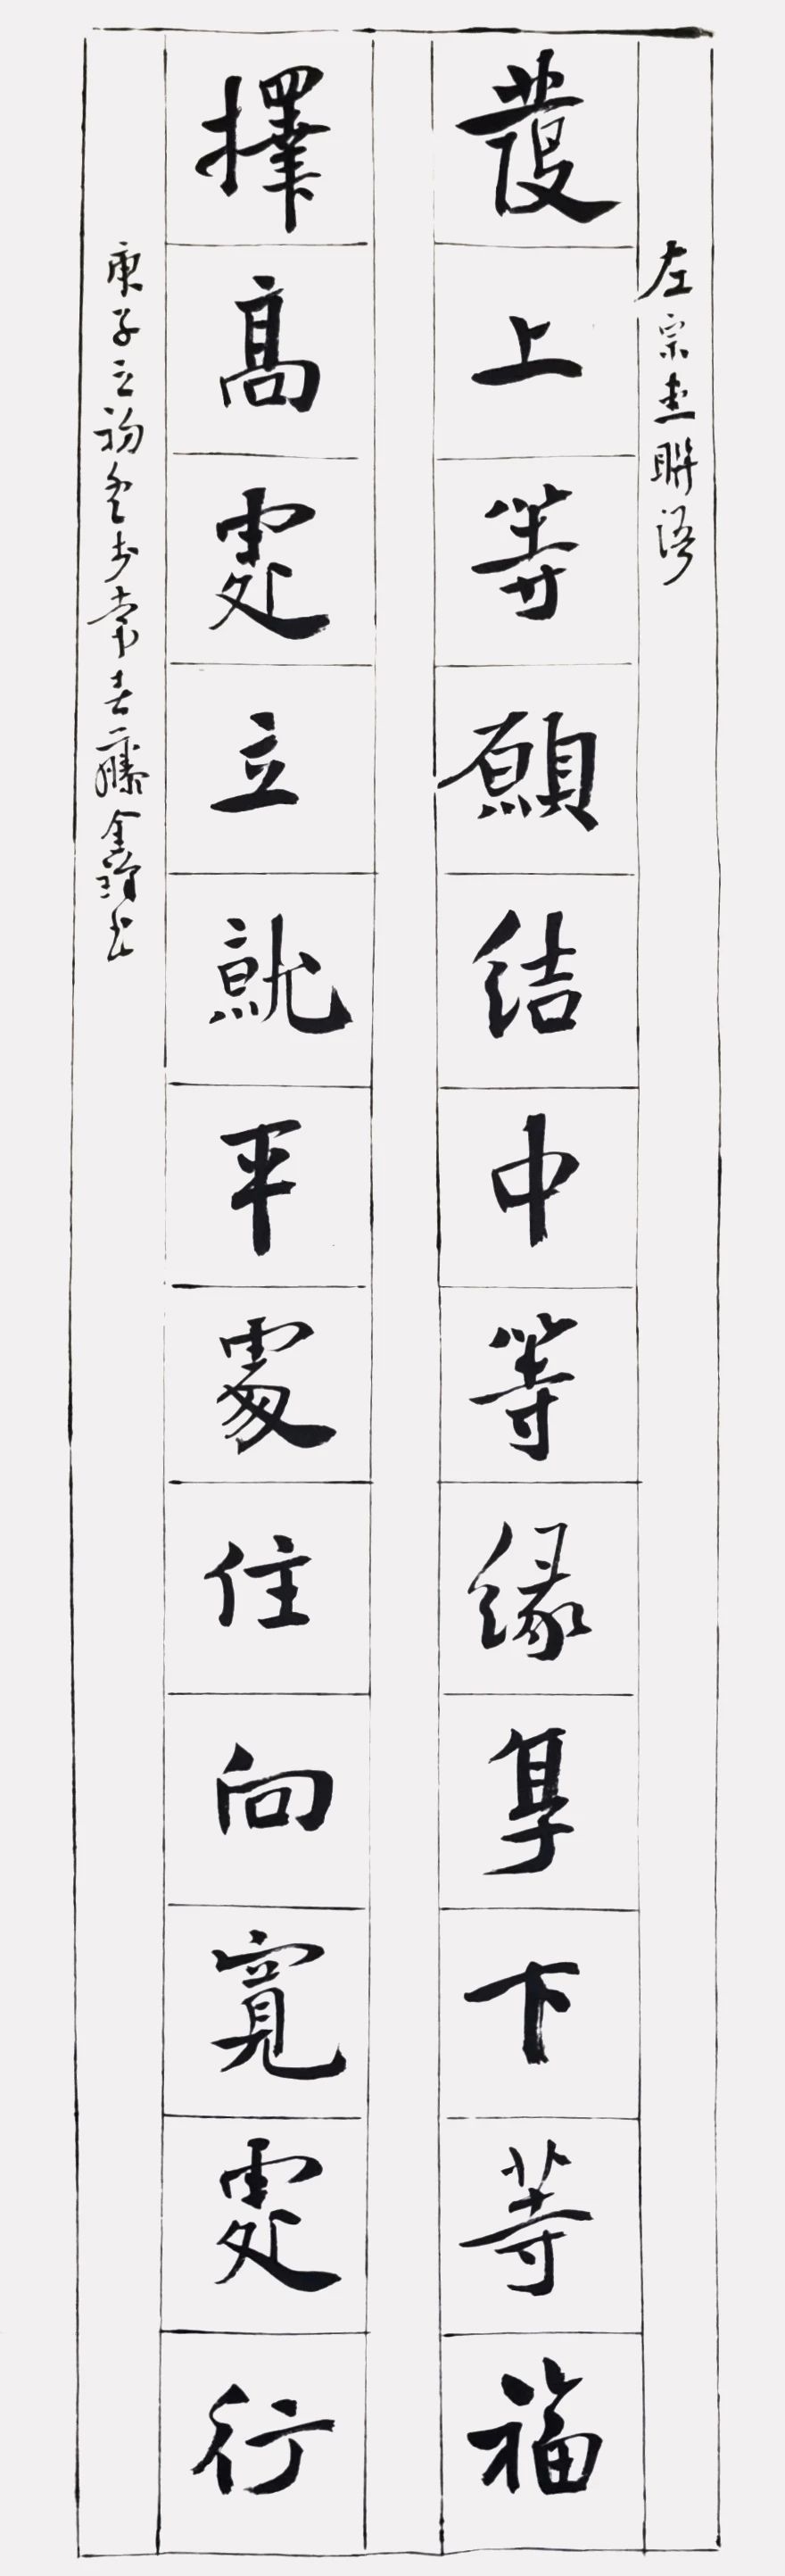 左宗棠聯語
發上等願結中等緣享下等福
擇高處立就平處住向寬處行
庚子立初冬書常春藤鑫